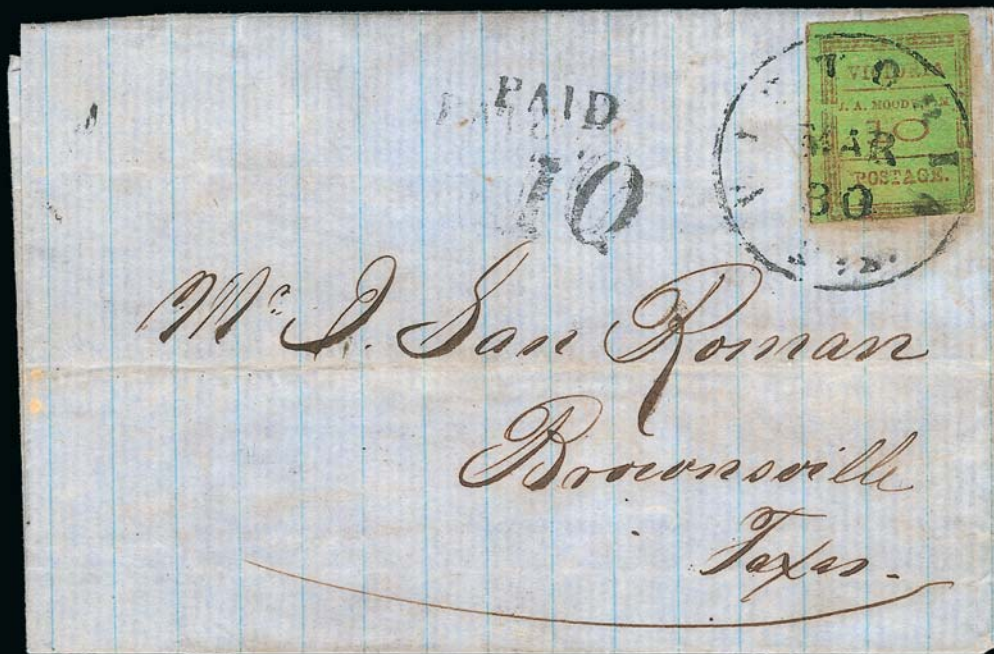 PAID
10
VICTORIA
J. A. MOODY, P.M.
10
POSTAGE.
MAR
30
Mr. J. San Roman
Brownsville
Texas.